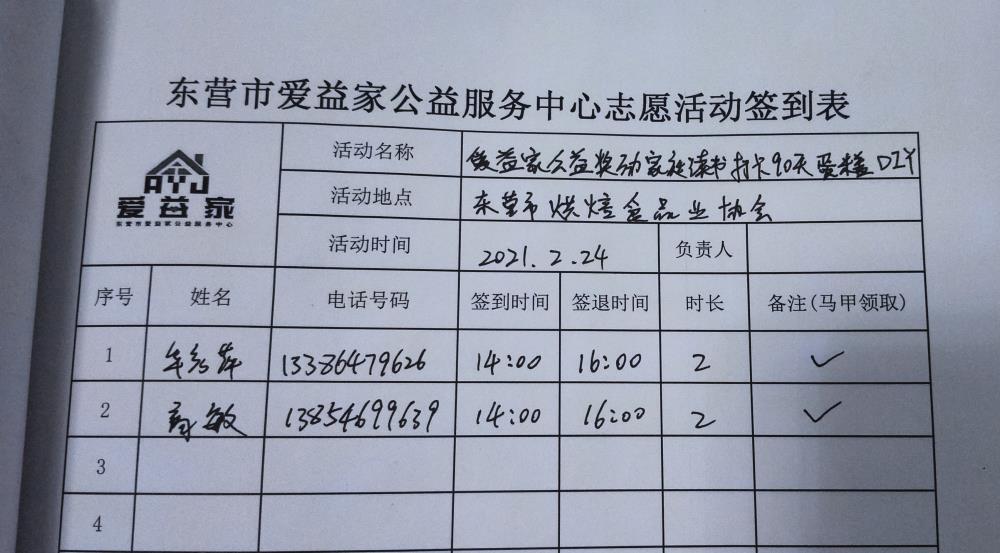 东营市爱益家公益服务中心志愿活动签到表
AYJ
爱益家
东营市爱益家公益服务中心
活动名称 爱益家公益奖励家庭读书打卡90天蛋糕DIY
活动地点 东营市烘焙食品业协会
活动时间 2021.2.24 负责人
序号 姓名 电话号码 签到时间 签退时间 时长 备注(马甲领取)
1 13386479626 14:00 16:00 2 ✓
2 敏 13854699639 14:00 16:00 2 ✓
3
4